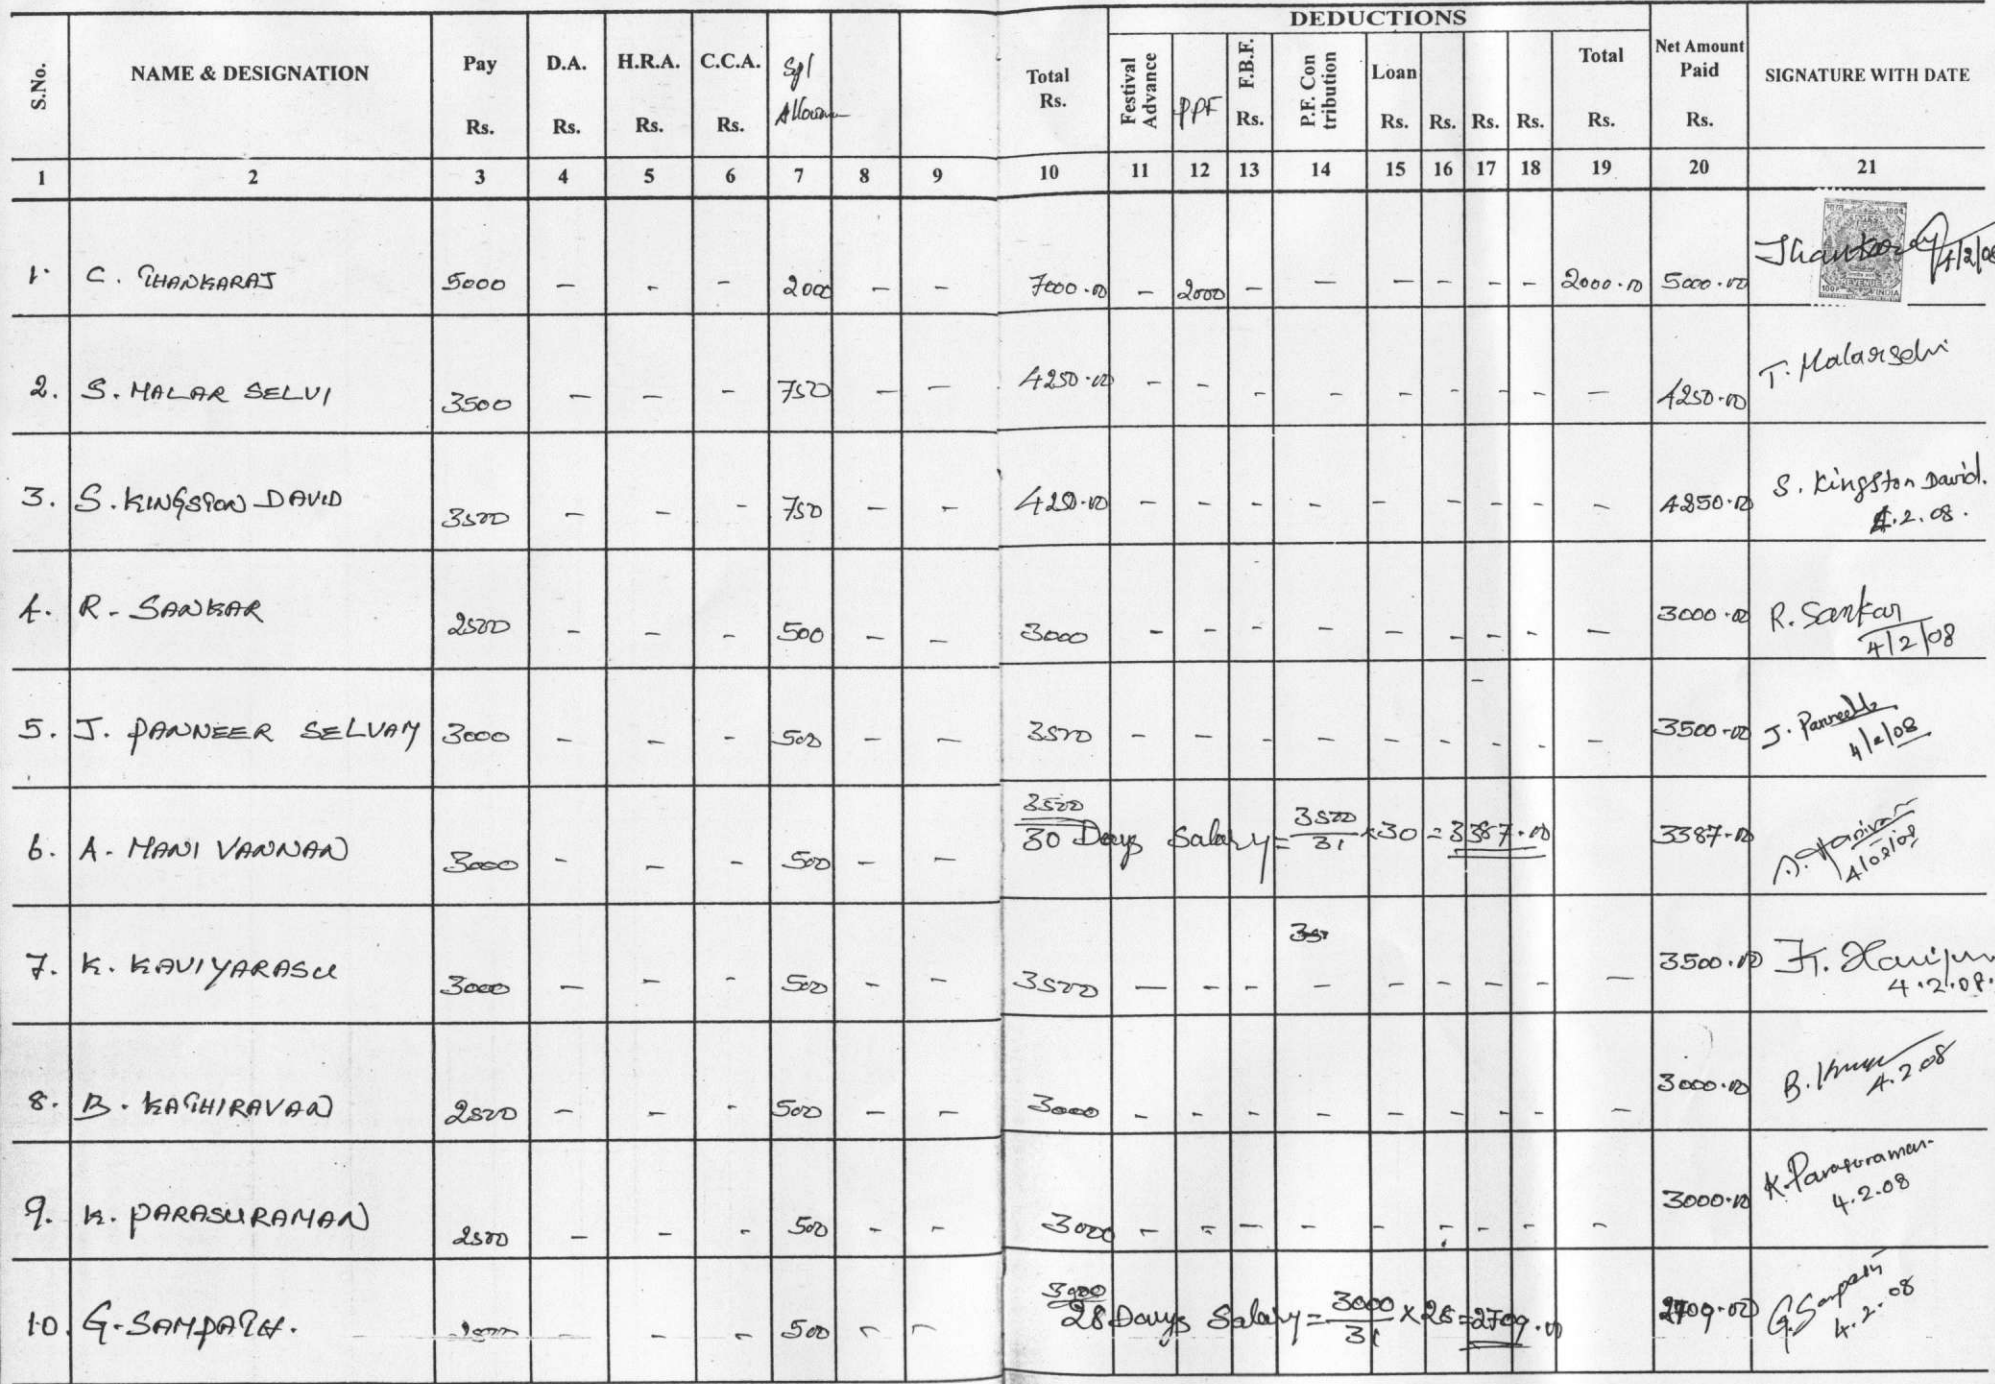 DEDUCTIONS
S.No. NAME & DESIGNATION Pay Rs. D.A. Rs. H.R.A. Rs. C.C.A. Rs. Spl Total Rs. Festival Advance PPF F.B.F. Rs. P.F. Con tribution Loan Rs. Rs. Rs. Rs. Total Rs. Net Amount Paid Rs. SIGNATURE WITH DATE
1 2 3 4 5 6 7 8 9 10 11 12 13 14 15 16 17 18 19 20 21
1. C. THANKARAJ 5000 - - - 2000 - - 7000.00 - 2000 - - - - - - 2000.00 5000.00 4/2/08
REVENUE INDIA
2. S. MALAR SELVI 3500 - - - 750 - - 4250.00 - - - - - - - - - 4250.00 T. Malarselvi
3. S. KINGSTON DAVID 3500 - - - 750 - - 4250.00 - - - - - - - - - 4250.00 S. Kingston David. 4.2.08.
4. R. SANKAR 2500 - - - 500 - - 3000 - - - - - - - - - 3000.00 R. Sankar 4/2/08
5. J. PANNEER SELVAM 3000 - - - 500 - - 3500 - - - - - - - - - 3500.00 J. 4/2/08
6. A. MANI VANNAN 3000 - - - 500 - - 3500
30 Days Salary = 3500/31 × 30 = 3387.00 3387.00 4/02/08
7. K. KAVIYARASU 3000 - - - 500 - - 3500 - - - - - - - - - 3500.00 4.2.08.
8. B. KATHIRAVAN 2500 - - - 500 - - 3000 - - - - - - - - - 3000.00 4.2.08
9. K. PARASURAMAN 2500 - - - 500 - - 3000 - - - - - - - - - 3000.00 K. Parasuraman 4.2.08
10. G. SAMPATH. 2500 - - - 500 - - 3000
28 Days Salary = 3000/31 × 28 = 2709.00 2709.00 G. Sampath 4.2.08